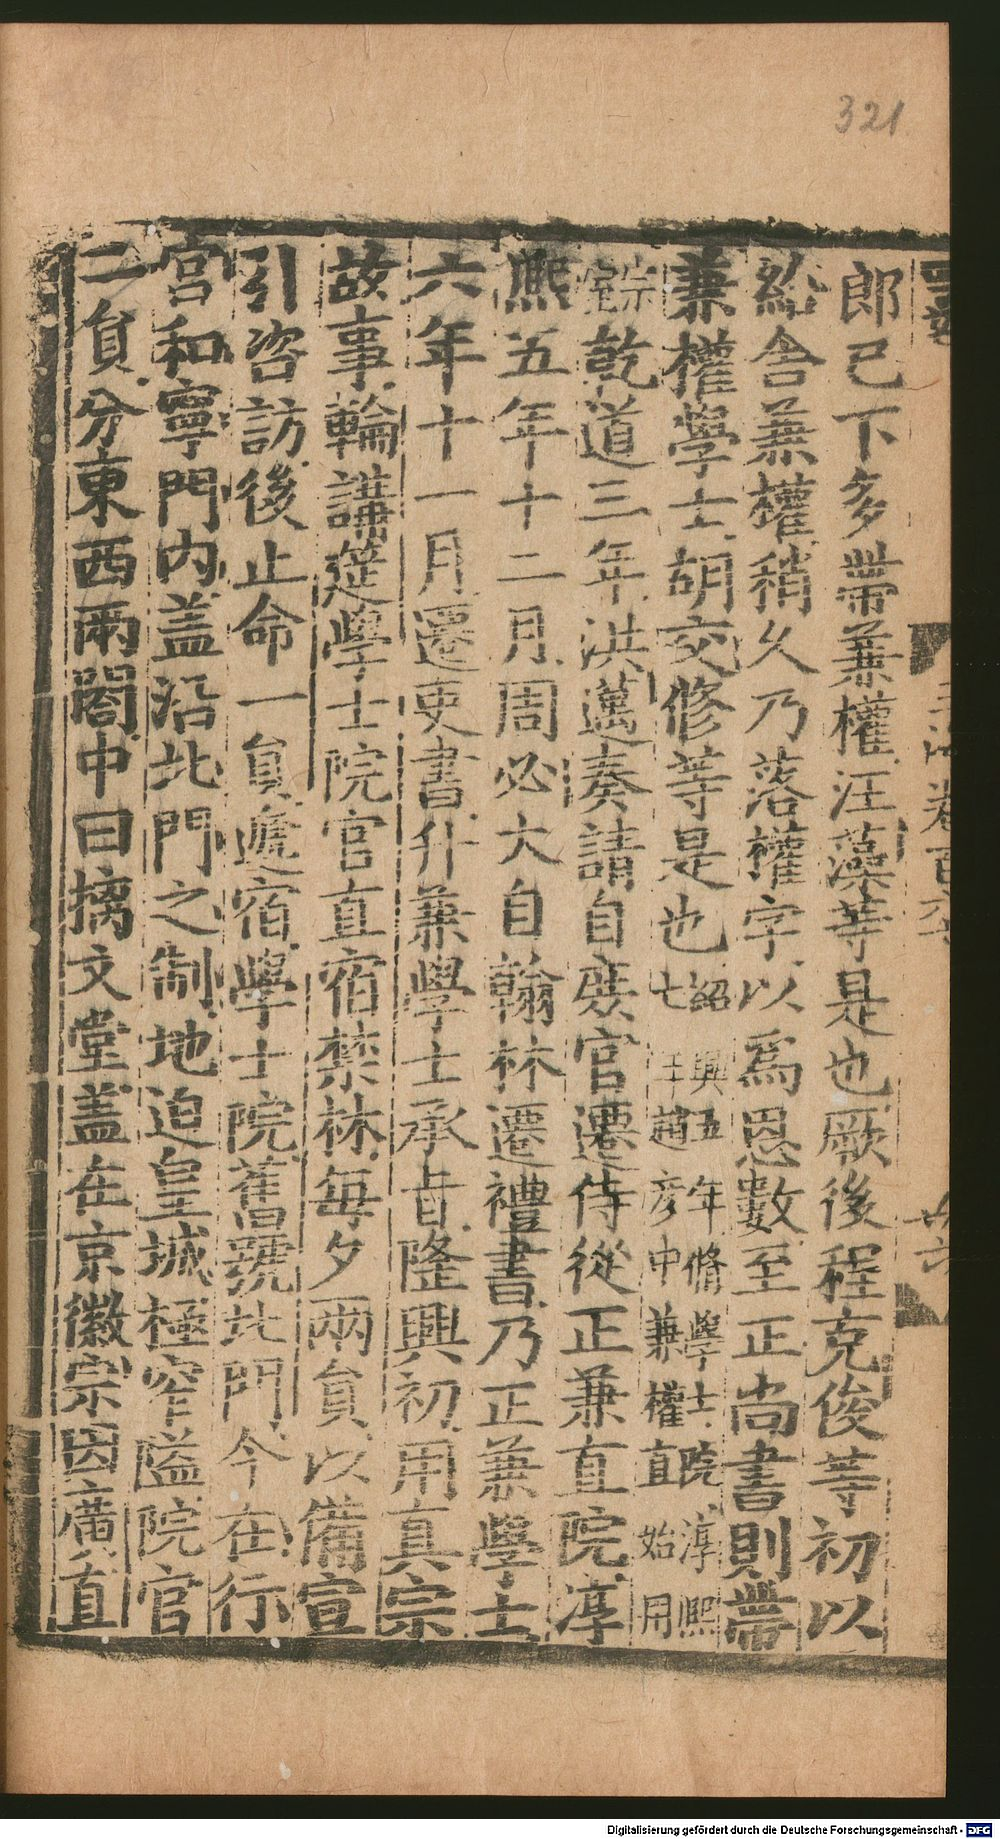 321
郎已下多帶兼權汪藻等是也厥後程克俊等初以
給舍兼權稍久乃落權字以爲恩數至正尚書則帶
兼權學士胡交修等是也紹興五年脩學士院淳熙
七 王趙彦中兼權直 始用
宗室乾道三年洪邁奏請自庶官遷侍從正兼直院淳
熙五年十二月周必大自翰林遷禮書乃正兼學士
六年十一月遷吏書升兼學士承旨隆興初用真宗
故事輪講筵學士院官直宿禁林毎夕兩貟以備宣
引咨訪後止命一貟遞宿學士院舊號北門今在行
宫和寧門内盖沿北門之制地迫皇城極窄隘院官
二貟分東西兩閣中曰摛文堂盖在京徽宗因廣直
Digitalisierung gefördert durch die Deutsche Forschungsgemeinschaft - DFG